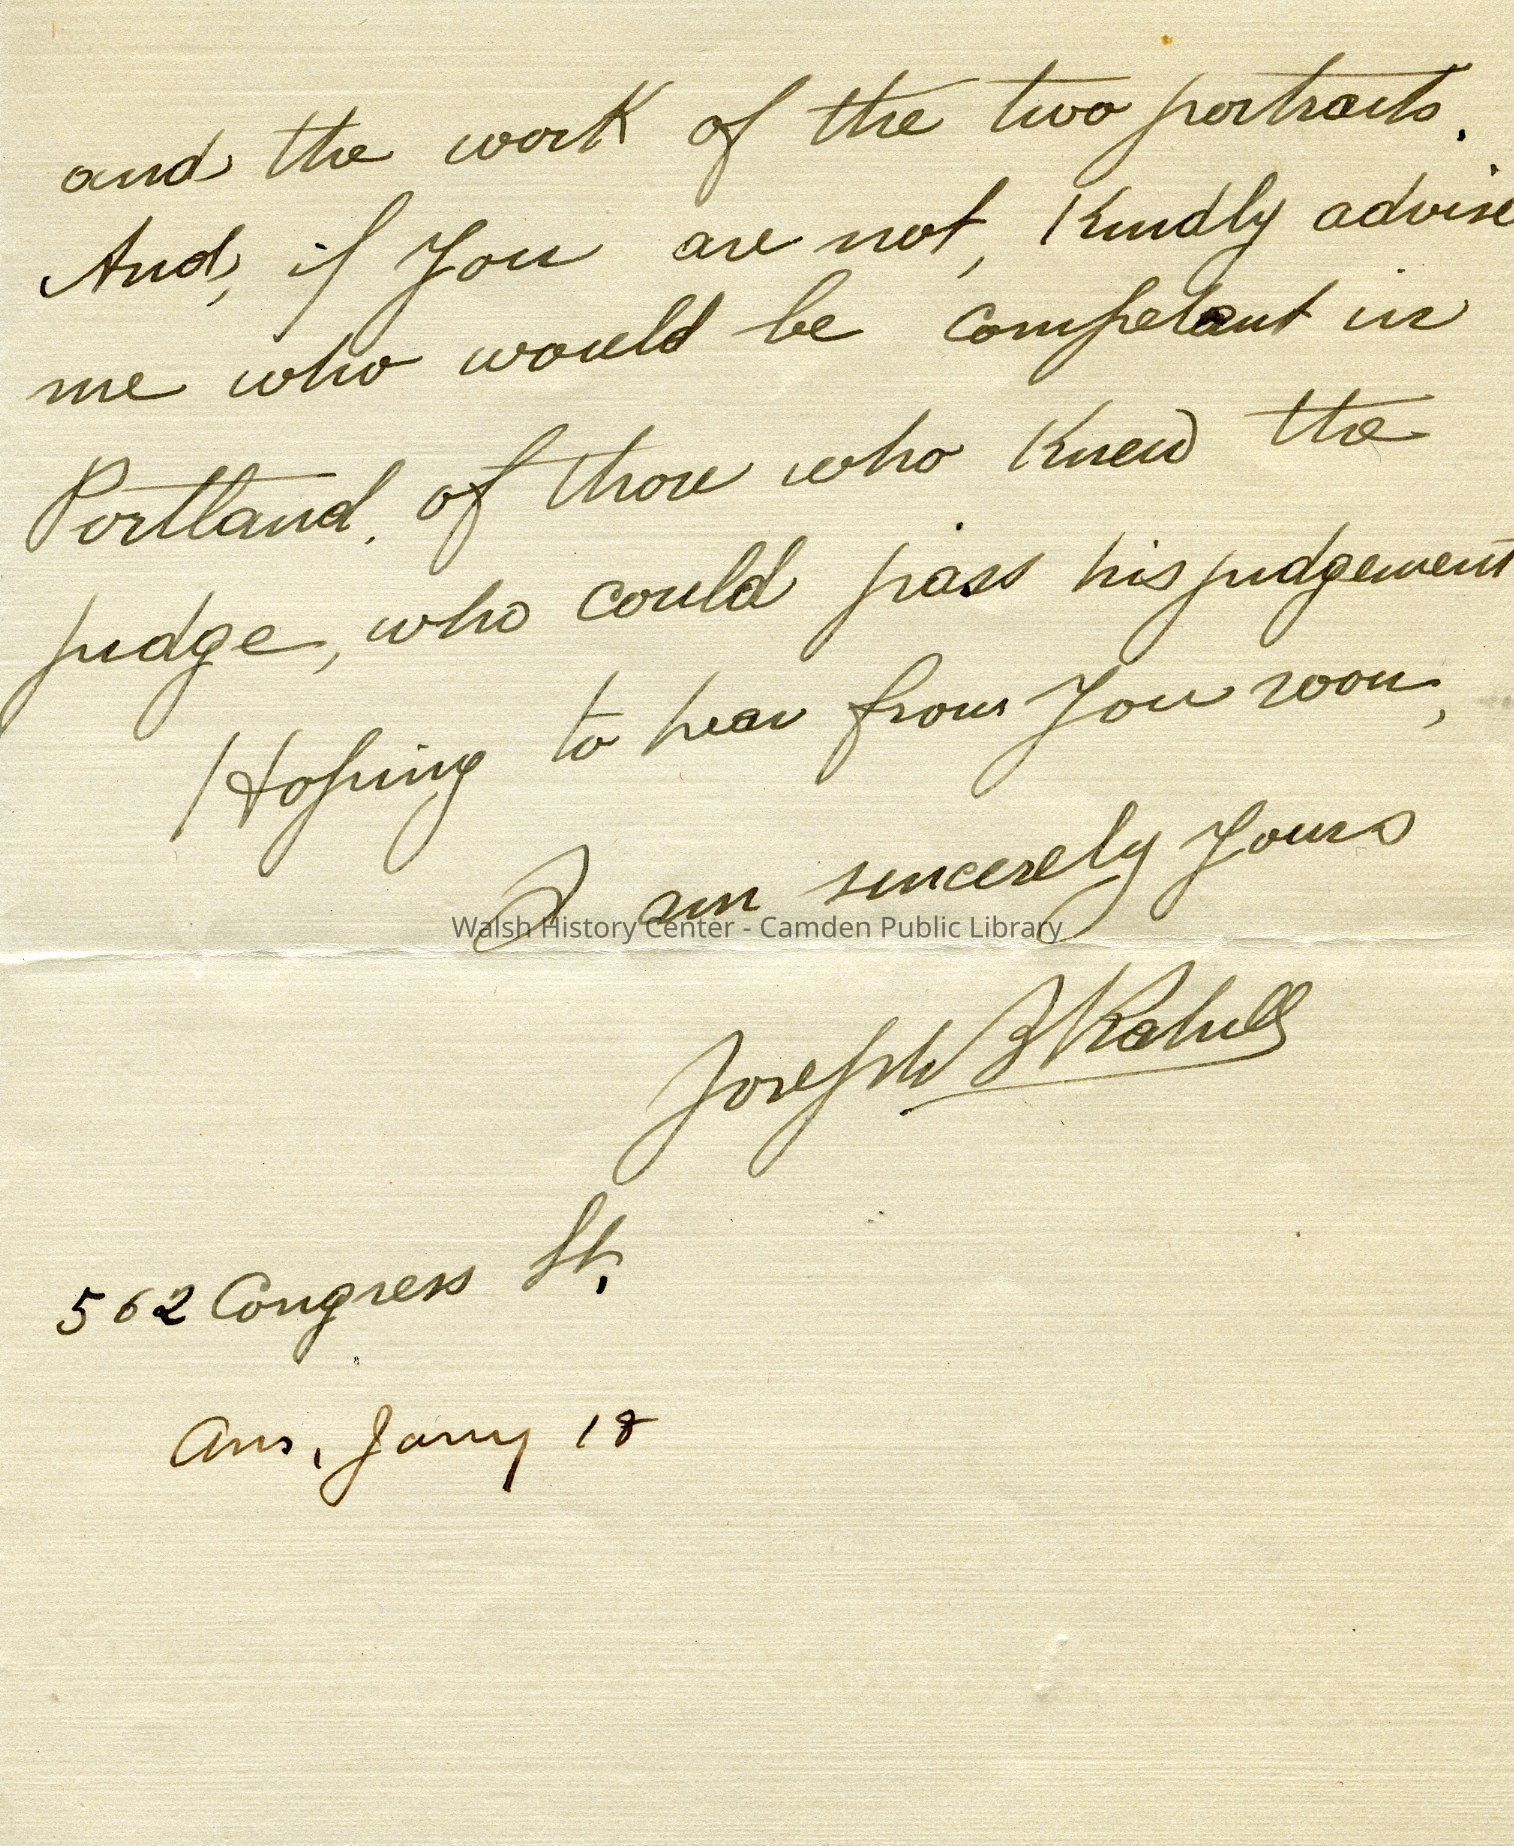 and the work of the two portraits.
And, if You are not, Kindly advise
me who would be competant in
Portland, of those who Knew the
judge, who could pass his judgement
Hoping to hear from You soon,
I am sincerely Yours
Walsh History Center - Camden Public Library
Joseph B Kahill
562 Congress St.
Ans, Jany 18